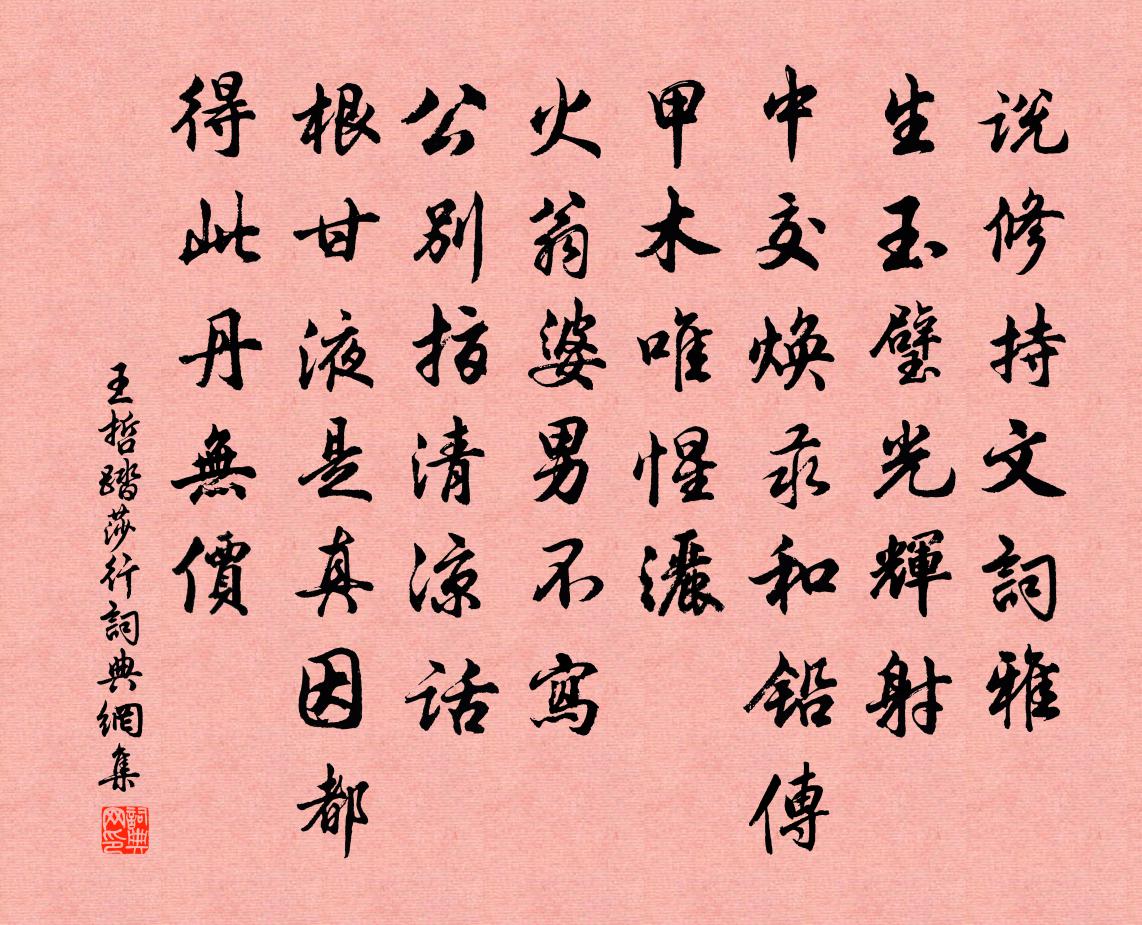 说修持文詞雅
生玉璧光輝射
中交焕汞和鉛傳
甲木唯惺灑
火翁婆男不寫
公別指清凉話
根甘液是真因都
得此丹無價
王哲踏莎行詞典網集
詞典网印